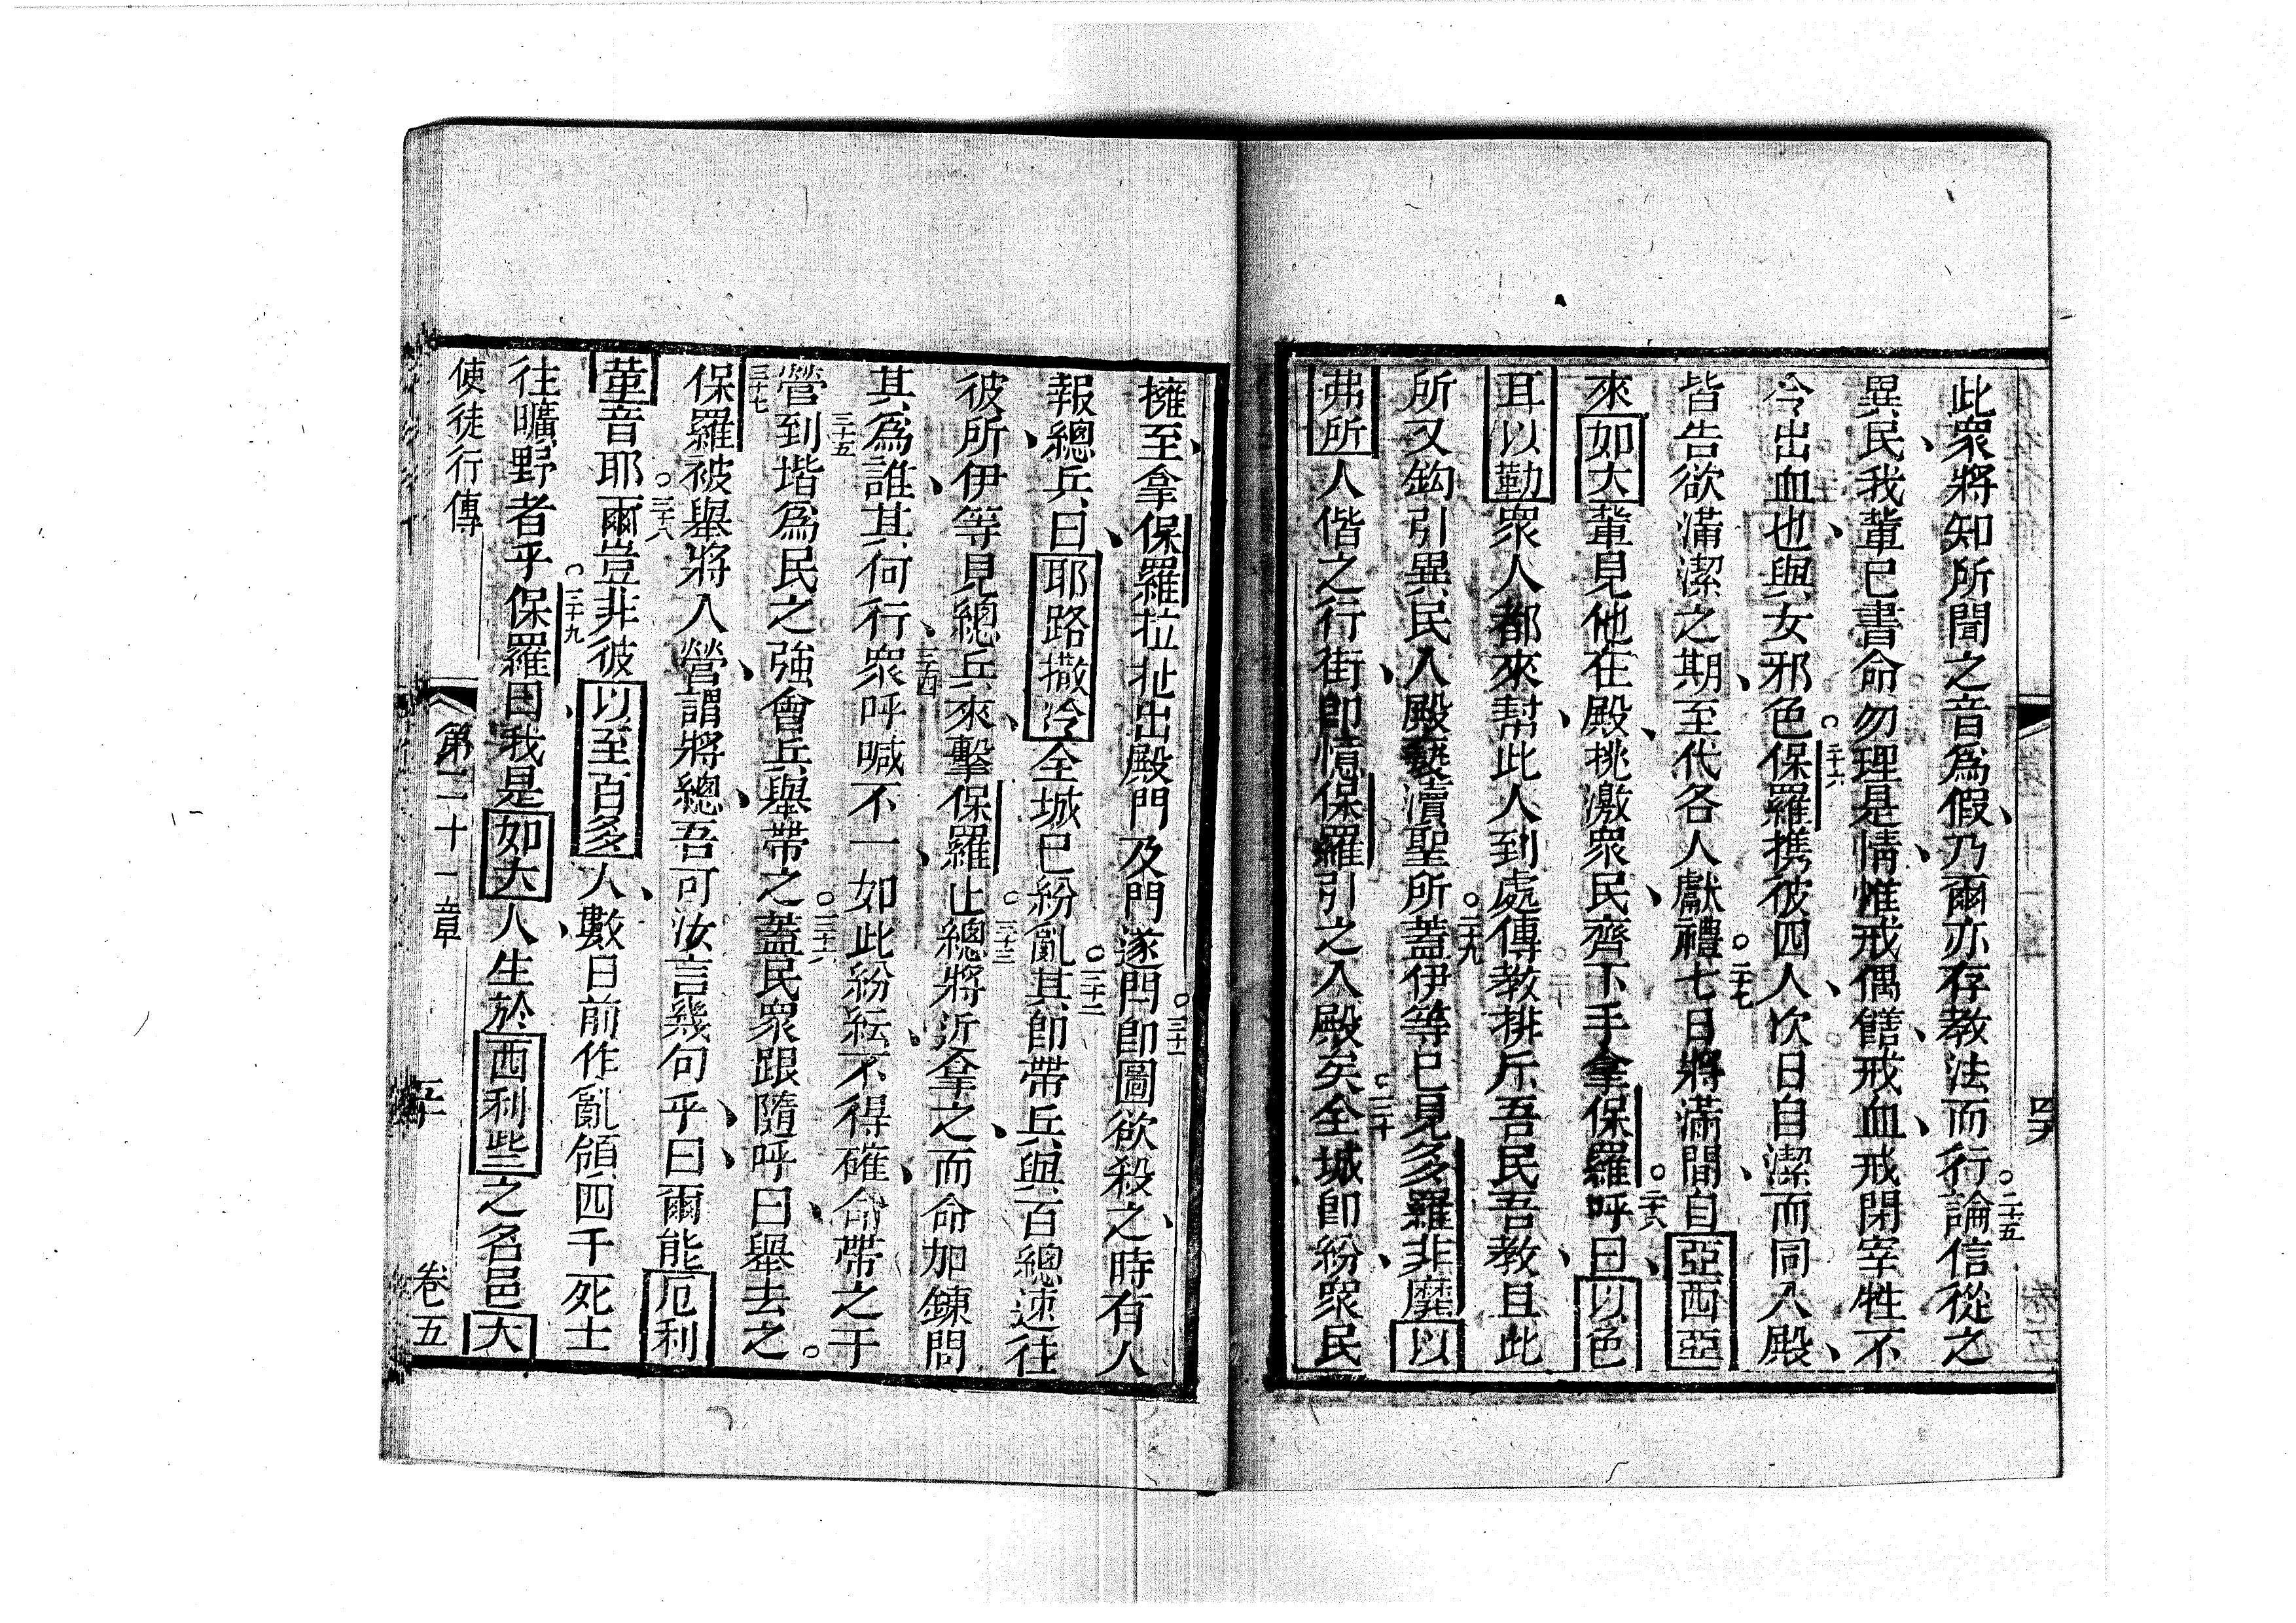 此衆將知所聞之音爲假、乃爾亦存教法而行。二十五論信從之
異民、我輩已書命勿理是情、惟戒偶饍、戒血、戒閉宰牲、不
令出血也、與女邪色。二十六保羅攜彼四人、次日自潔而同入殿、
皆告欲滿潔之期、至代各人獻禮。二十七七日將滿間、自亞西亞
來如大輩見他在殿、挑激衆民、齊下手拿保羅。二十八呼曰、以色
耳以勒衆人都來幫、此人到處傳教排斥吾民吾教、且此
所又鈎引異民入殿褻瀆聖所。二十九蓋伊等已見多羅非磨以
弗所人偕之行街、卽憶保羅引之入殿矣。三十全城卽紛、衆民
擁至、拿保羅拉扯出殿門、及門遂閂。三十一卽圖欲殺之時、有人
報總兵、曰、耶路撒冷全城已紛亂。三十二其卽帶兵與百總速往
彼所、伊等見總兵來、擊保羅止。三十三總將近拿之、而命加鍊問
其爲誰、其何行、三十四衆呼喊不一、如此紛紜、不得確、命帶之于
營。三十五到堦爲民之強會、兵舉帶之。三十六蓋民衆跟隨呼曰、舉去之。
三十七保羅被舉將入營、謂將總、吾可汝言幾句乎、曰、爾能厄利
葷音耶。三十八爾豈非彼以至百多人、數日前作亂、領四千死士
往曠野者乎。三十九保羅曰、我是如大人、生於西利些之名邑大
使徒行傳 第二十一章 卷五